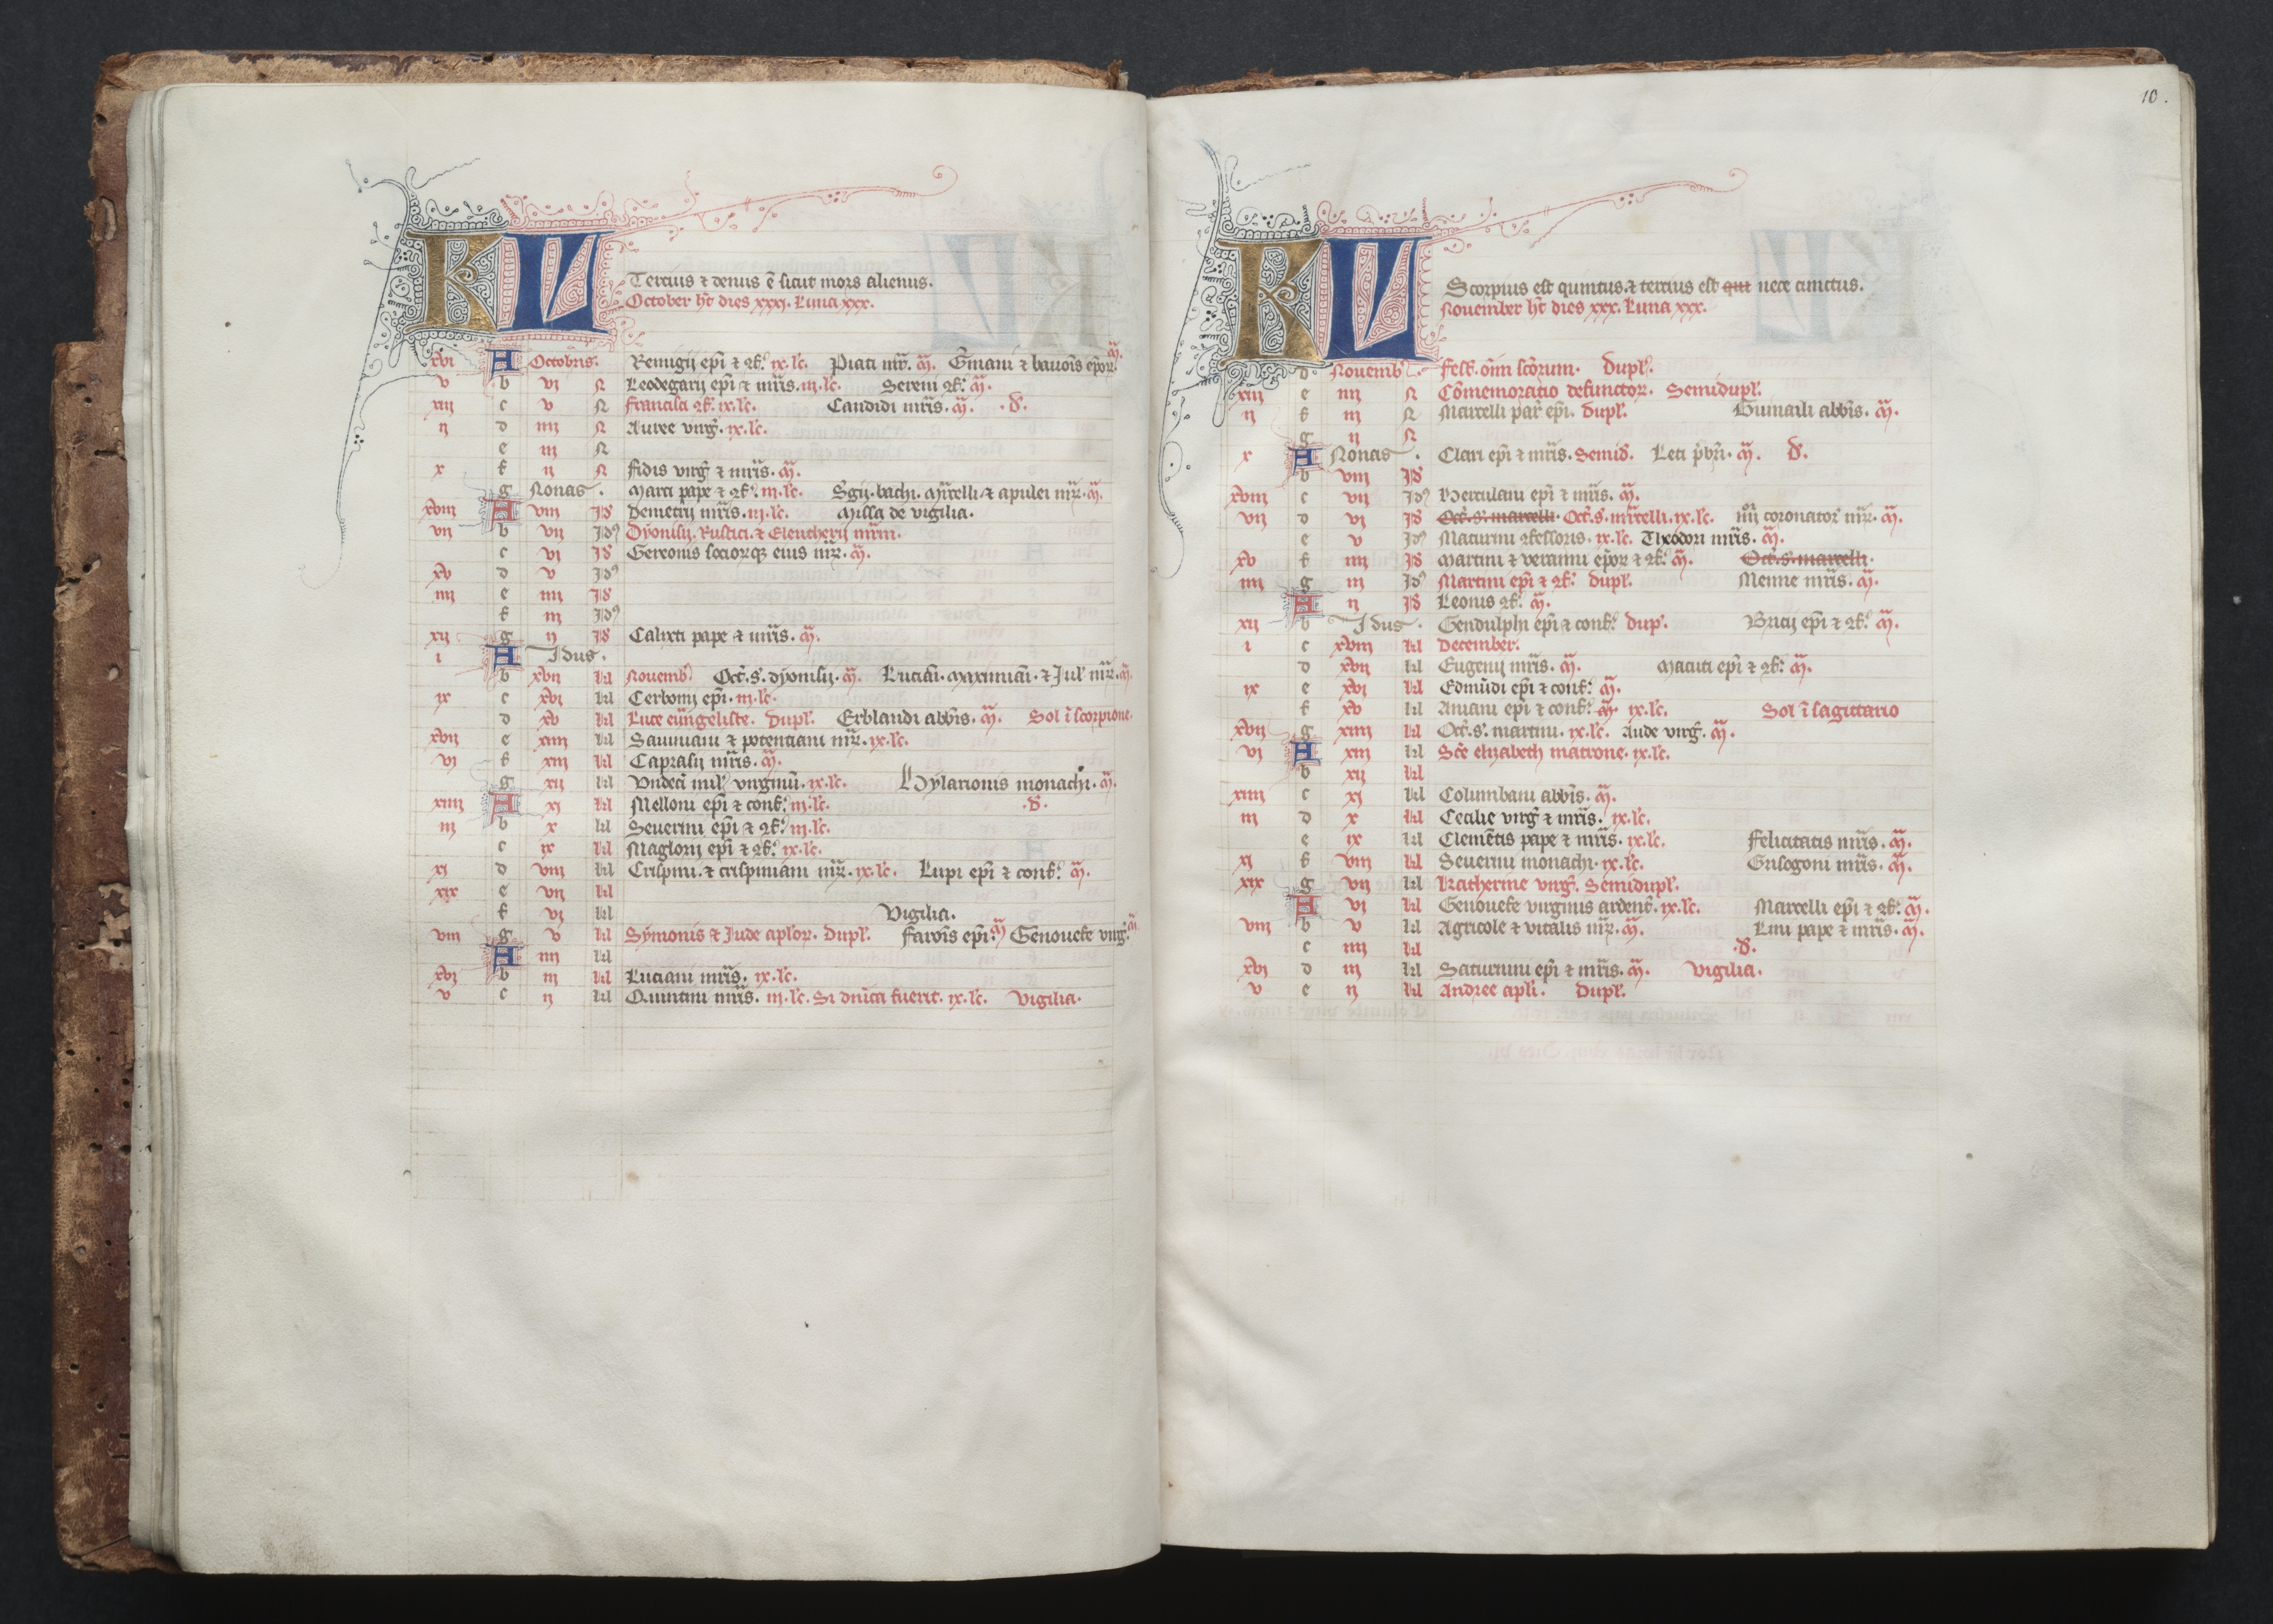 KL Tercius ⁊ denus ē sicut mors alienus.
October h̄t dies xxxj. Luna xxx.
xvj A Octobris. Remigij ep̄i ⁊ ꝯf. ix. lc̄. Piati mr̄. m̄. G̃mani ⁊ bauoīs ep̄or. m̄.
v b vj N Leodegarij ep̄i ⁊ mr̄is. iij. lc̄. Sereni ꝯf. m̄.
xiij c v N francisci ꝯf. ix. lc̄. Candidi mr̄is. m̄. .d̄.
ij d iiij N Auree virg̃. ix. lc̄.
e iij N
x f ij N fidis virg̃ ⁊ mr̄is. m̄.
g Nonas. Marci pape ⁊ ꝯf. iij. lc̄. S̃gij. bachi. m̃celli. ⁊ apulei mr̄ꝝ. m̄.
xviij A viij Id Demetrij mr̄is. iij. lc̄. Missa de vigilia.
vij b vij Idꝰ Dyonisij. Rustici. ⁊ Eleutherij mr̄m.
c vj Id Gereonis sociorqꝫ eius mr̄ꝝ. m̄.
xv d v Idꝰ
iiij e iiij Id
f iij Idꝰ
xij g ij Id Calixti pape ⁊ mr̄is. m̄.
i A Idus.
b xvij kl Nouemb̃ Oct̃. s. dyonisij. m̄. Lucian̄. maximian̄. ⁊ Jul' mr̄ꝝ. m̄.
ix c xvj kl Cerbonij ep̄i. iij. lc̄.
d xv kl Luce eūngeliste. Dupl'. Erblandi abb̄is. m̄. Sol ī scorpione.
xvij e xiiij kl Sauiniani ⁊ potentiani mr̄ꝝ. ix. lc̄.
vj f xiij kl Caprasij mr̄is. m̄.
g xij kl Vndecī mil' virginū. ix. lc̄. Hylarionis monachi. m̄.
xiiij A xj kl Melloni ep̄i ⁊ conf. iij. lc̄. .d̄.
iij b x kl Seuerini ep̄i ⁊ ꝯf. iij. lc̄.
c ix kl Maglorij ep̄i ⁊ ꝯf. ix. lc̄.
xj d viij kl Crispini. ⁊ crispiniani mr̄ꝝ. ix. lc̄. Lupi ep̄i ⁊ conf. m̄.
xix e vij kl
f vj kl Vigilia.
viij g v kl Symonis ⁊ Jude apl'or. Dupl'. faroīs ep̄i. m̄ Genouefe virg̃. m̄
A iiij kl
xvj b iij kl Luciani mr̄is. ix. lc̄.
v c ij kl Quintini mr̄is. iij. lc̄. Si dn̄ica fuerit. ix. lc̄. Vigilia.
10.
KL Scorpius est quintus. ⁊ tercius est qui nece cinctus.
Nouember h̄t dies xxx. Luna xxx.
d Nouemb̃. fest. om̄i sc̄orum. Dupl'.
xiij e iiij N Cōmemoratio defunctor. Semidupl'.
ij f iij N Marcelli par̃ ep̄i. Dupl'. Guinaili abb̄is. m̄.
g ij N
x A Nonas. Clari ep̄i ⁊ mr̄is. Semid̄. Leti p̄br̄i. m̄. d̄.
b viij Id
xviij c vij Idꝰ Herculani ep̄i ⁊ mr̄is. m̄.
vij d vj Id Oct̃. s. marcelli. Oct̃. s. m̃celli. ix. lc̄. iiij coronator mr̄ꝝ. m̄.
e v Idꝰ Maturini ꝯfessoris. ix. lc̄. Theodori mr̄is. m̄.
xv f iiij Id Martini ⁊ veranni ep̄or ⁊ ꝯf. m̄. Oct̃. s. marcelli.
iiij g iij Idꝰ Martini ep̄i ⁊ ꝯf. dupl'. Menne mr̄is. m̄.
A ij Id Leonis ꝯf. m̄.
xij b Idus. Gendulphi ep̄i ⁊ conf. dup'. Bricij ep̄i ⁊ ꝯf. m̄.
i c xviij kl December.
d xvij kl Eugenij mr̄is. m̄. Macuti ep̄i ⁊ ꝯf. m̄.
ix e xvj kl Edmūdi ep̄i ⁊ conf. m̄.
f xv kl Aniani ep̄i ⁊ conf. m̄. ix. lc̄. Sol ī sagittario
xvij g xiiij kl Oct̃. s. martini. ix. lc̄. Aude virg̃. m̄.
vj A xiij kl Sc̄e elizabeth matrone. ix. lc̄.
b xij kl
xiiij c xj kl Columbani abb̄is. m̄.
iij d x kl Cecilie virg̃ ⁊ mr̄is. ix. lc̄.
e ix kl Clemētis pape ⁊ mr̄is. ix. lc̄. Felicitatis mr̄is. m̄.
xj f viij kl Seuerini monachi. ix. lc̄. Grisogoni mr̄is. m̄.
xix g vij kl Katherine virg̃. Semidupl'.
A vj kl Genouefe virginis ardent̃. ix. lc̄. Marcelli ep̄i ⁊ ꝯf. m̄.
viij b v kl Agricole ⁊ vitalis mr̄ꝝ. m̄. Lini pape ⁊ mr̄is. m̄.
c iiij kl .d̄.
xvj d iij kl Saturnini ep̄i ⁊ mr̄is. m̄. Vigilia.
v e ij kl Andree apl'i. Dupl'.